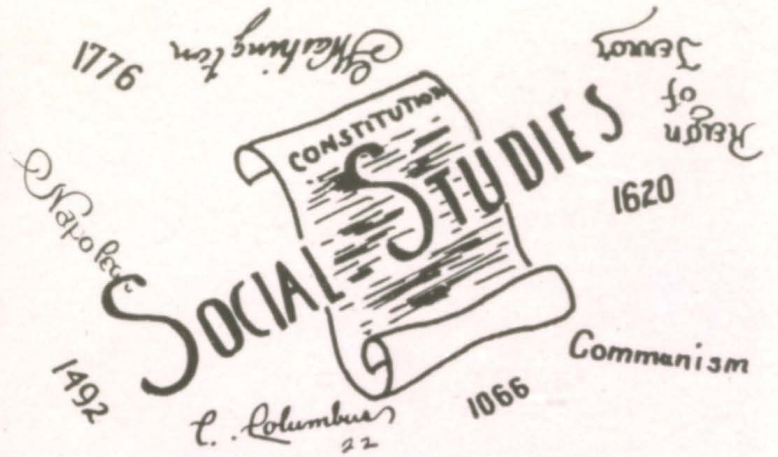 1776
Washington
Reign
of
Terror
CONSTITUTION
SOCIAL STUDIES
1620
Napoleon
1492
C. Columbus
22
1066
Communism